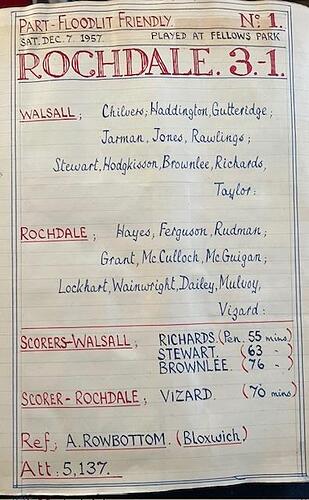 PART-FLOODLIT FRIENDLY. Nº 1.
SAT. DEC. 7. 1957. PLAYED AT FELLOWS PARK
ROCHDALE. 3-1.
WALSALL; Chilvers; Haddington, Gutteridge;
Jarman, Jones, Rawlings;
Stewart, Hodgkisson, Brownlee, Richards,
Taylor:
ROCHDALE; Hayes, Ferguson, Rudman;
Grant, McCulloch, McGuigan;
Lockhart, Wainwright, Dailey, Mulvoy,
Vizard:
SCORERS-WALSALL; RICHARDS. (Pen. 55 mins)
STEWART. (63 - )
BROWNLEE. (76 - )
SCORER-ROCHDALE; VIZARD. (70 mins)
Ref; A. ROWBOTTOM. (Bloxwich)
Att: 5,137.